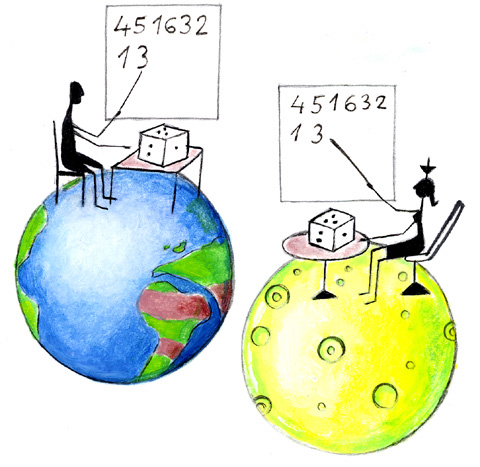 451632
13
451632
13